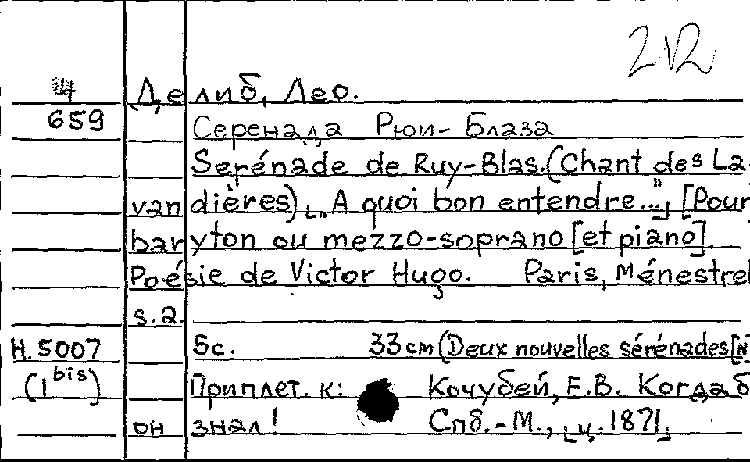 212
Щ Делиб, Лео.
659 Серенада Рюи-Блаза
Sérénade de Ruy-Blas. (Chant des La
vandières) "A quoi bon entendre..." [Pour
baryton ou mezzo-soprano [et piano].
Poésie de Victor Hugo. Paris, Ménestrel
s.a.
H.5007 5с. 33 см (Deux nouvelles sérénades [N
(1 bis) Приплет. к: Кочубей, Е.В. Когда б
он знал! Спб.-М., ц.1871.